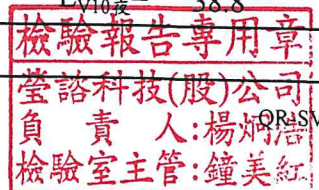 LV10夜= 38.8
檢驗報告專用章
瑩諮科技(股)公司
負責人:楊炯浩
檢驗室主管:鐘美紅
QR-SV